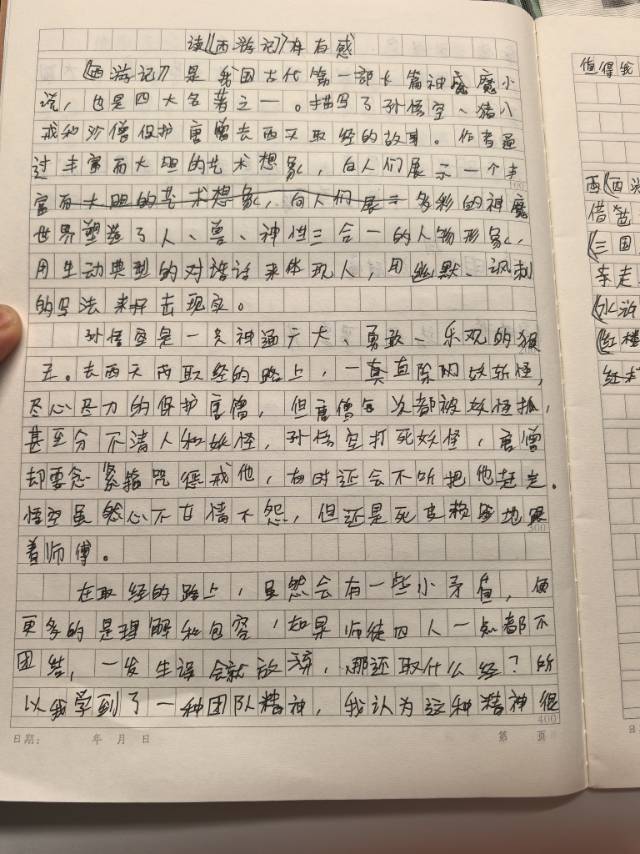 读《西游记》有有感
《西游记》是我国古代第一部长篇神魔小
说，也是四大名著之一。描写了孙悟空、猪八
戒和沙僧保护唐僧去西天取经的故事。作者通
过丰富而大胆的艺术想象，向人们展示一个丰
富而大胆的艺术想象，向人们展示多彩的神魔
世界塑造了人、兽、神性三合一的人物形象，
用生动典型的对话来体现人，用幽默、讽刺
的写法来抨击现实。
孙悟空是一只神通广大、勇敢、乐观的猴
王。去西天取经的路上，一直降妖，
尽心尽力的保护唐僧，但唐僧每次都被妖怪抓，
甚至分不清人和妖怪，孙悟空打死妖怪，唐僧
却要念紧箍咒惩戒他，有时还会不听把他赶走。
悟空虽然心不甘情不愿，但还是死地跟
着师傅。
300
在取经的路上，虽然会有一些小矛盾，但
更多的是理解和包容，如果师徒四人一点都不
团结，一发生误会就放弃，那还取什么经？所
以我学到了一种团队精神，我认为这种精神很
400
日期： 年 月 日
第 页
值得我
西《西游
借
《三国
车走
《水浒
《红楼
红